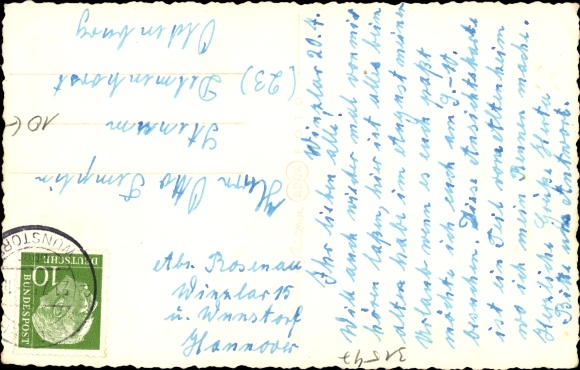 Winzlar 20.4.
Ihr lieben alle!
Will auch wieder mal von mir
hören laßen, hier ist alles beim
alten habe im August meinen
Urlaub wenn es euch paßt
möchte ich euch am 9.-10.
besuchen. Diese Ansichtskarte
ist ein Teil vom Altenheim
wo ich mein Rennen mache.
Herzliche Grüße
Bitte um Antwort.
Herrn Otto Templin
Stenum
(23) Delmenhorst
Oldenburg
Abs. Rosenau
Winzlar 15
ü. Wunstorf
Hannover
DEUTSCHE
BUNDESPOST
10
WUNSTORF
10,-